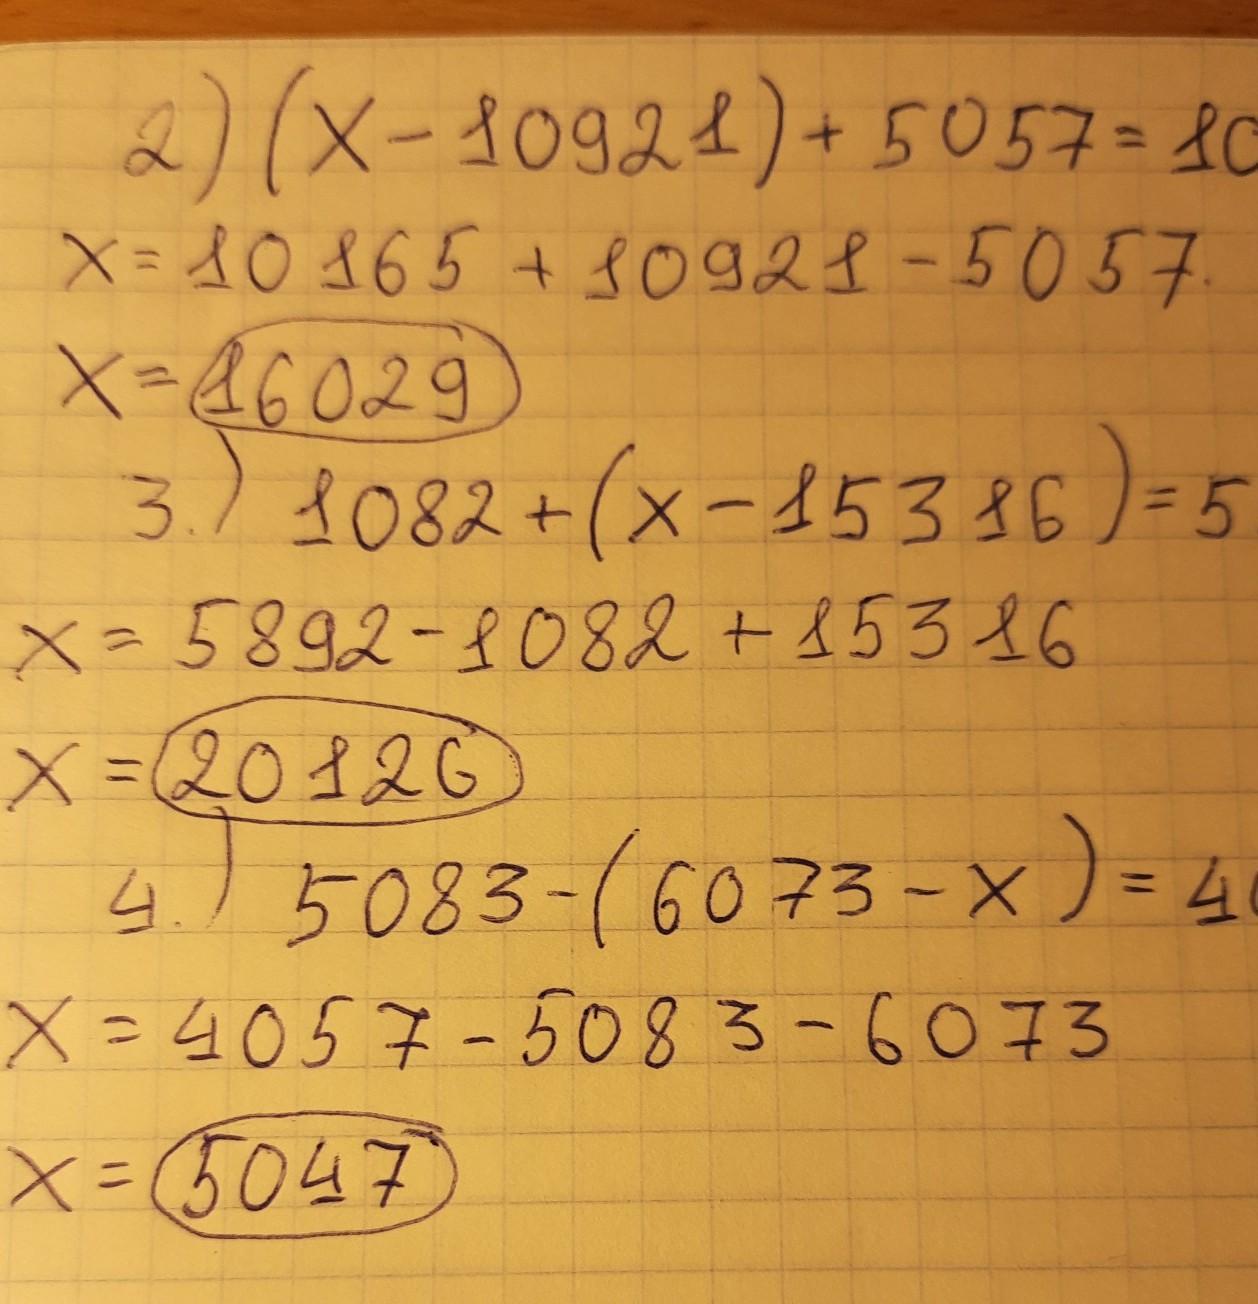 2) (x-10921)+5057=10
x=10165+10921-5057.
x=16029
3.) 1082+(x-15316)=5
x=5892-1082+15316
x=20126
4.) 5083-(6073-x)=40
x=4057-5083-6073
x=5047